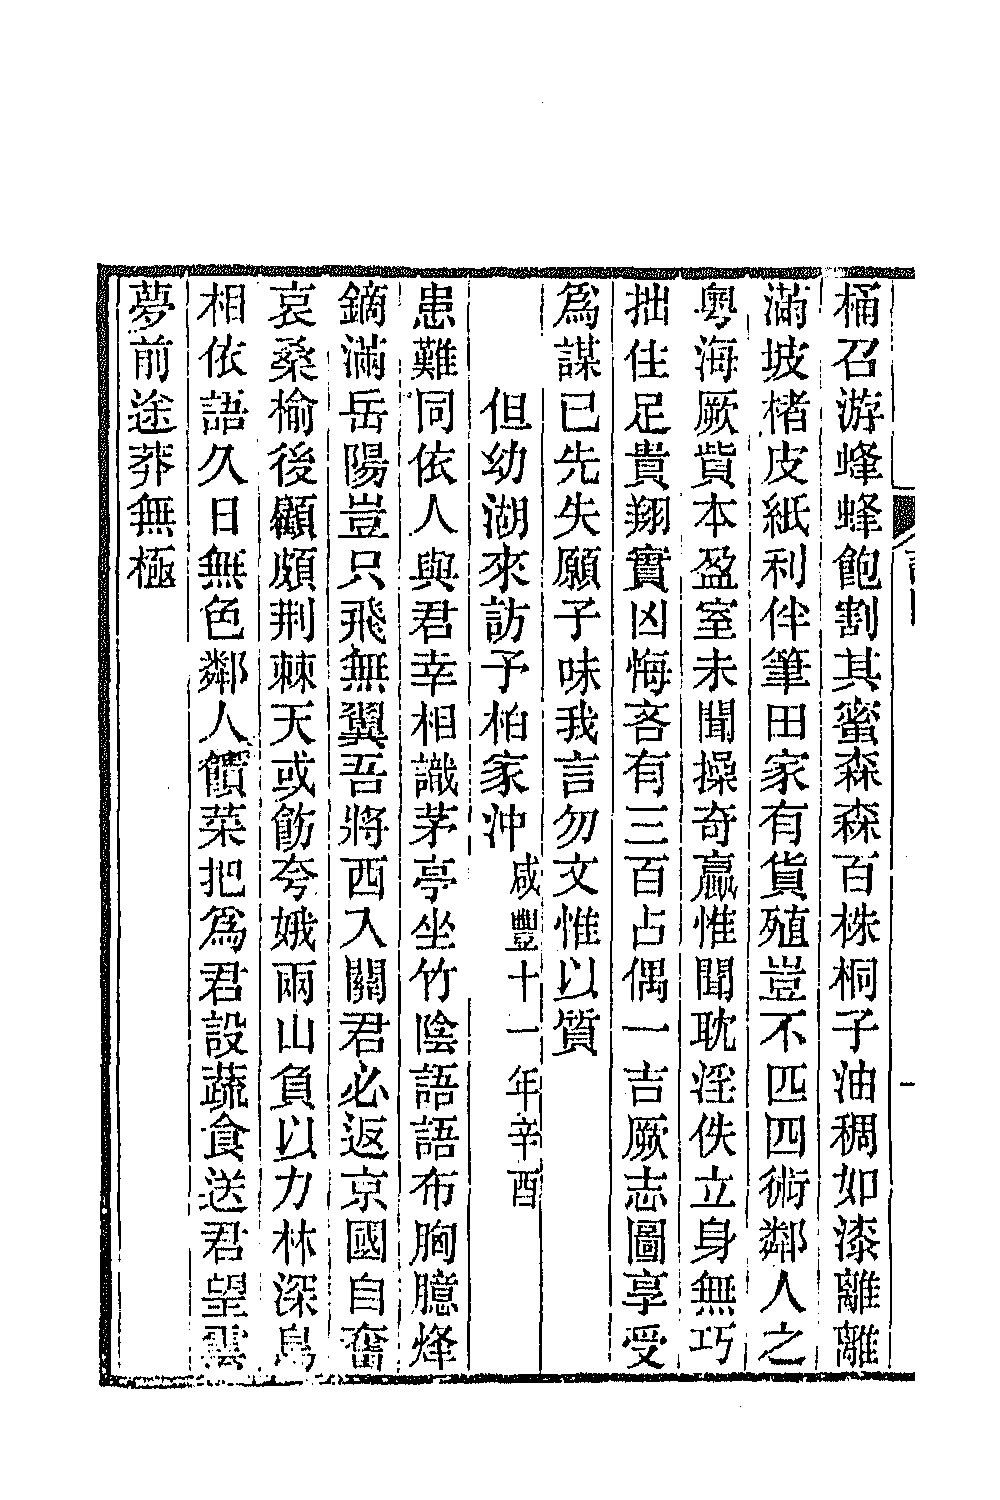 桶召游蜂蜂飽割其蜜森森百株桐子油稠如漆離離
滿坡楮皮紙利伴筆田家有貨殖豈不匹四術鄰人之
粵海厥貲本盈室未聞操奇贏惟聞耽淫佚立身無巧
拙住足貴翔實凶悔吝有三百占偶一吉厥志圖享受
爲謀已先失願子味我言勿文惟以質
但幼湖來訪予柏家沖咸豐十一年辛酉
患難同依人與君幸相識茅亭坐竹陰語語布胸臆烽
鏑滿岳陽豈只飛無翼吾將西入關君必返京國自奮
哀桑榆後顧頗荆棘天或飭夸娥兩山負以力林深鳥
相依語久日無色鄰人饋菜把爲君設蔬食送君望雲
夢前途莽無極